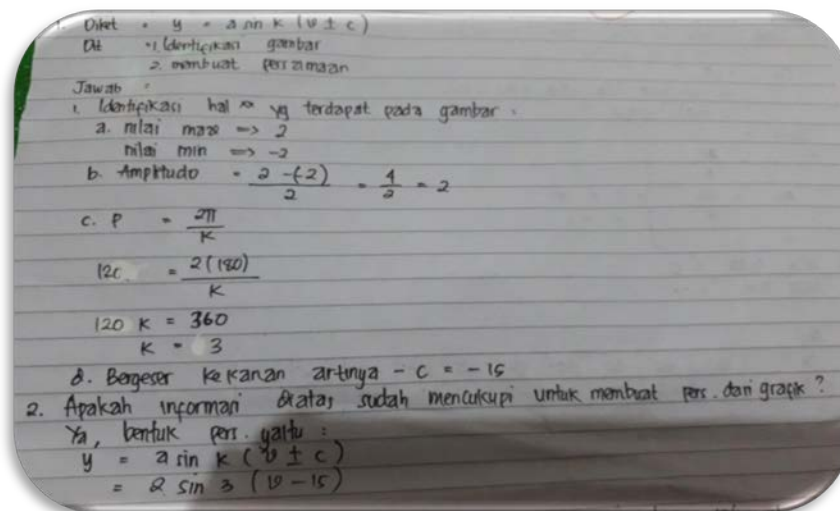 1. Diket : y = a sin k (θ ± c)
Dit : 1. Identifikasi gambar
2. membuat persamaan
Jawab :
1. Identifikasi hal yg terdapat pada gambar.
a. nilai max => 2
nilai min => -2
b. Amplitudo = 2 -(-2) / 2 = 4 / 2 = 2
c. P = 2π / K
120 = 2(180) / K
120 K = 360
K = 3
d. Bergeser kekanan artinya - c = -15
2. Apakah informasi diatas sudah mencukupi untuk membuat pers. dari grafik ?
Ya, bentuk pers. yaitu :
y = a sin k (θ ± c)
= 2 sin 3 (θ - 15)